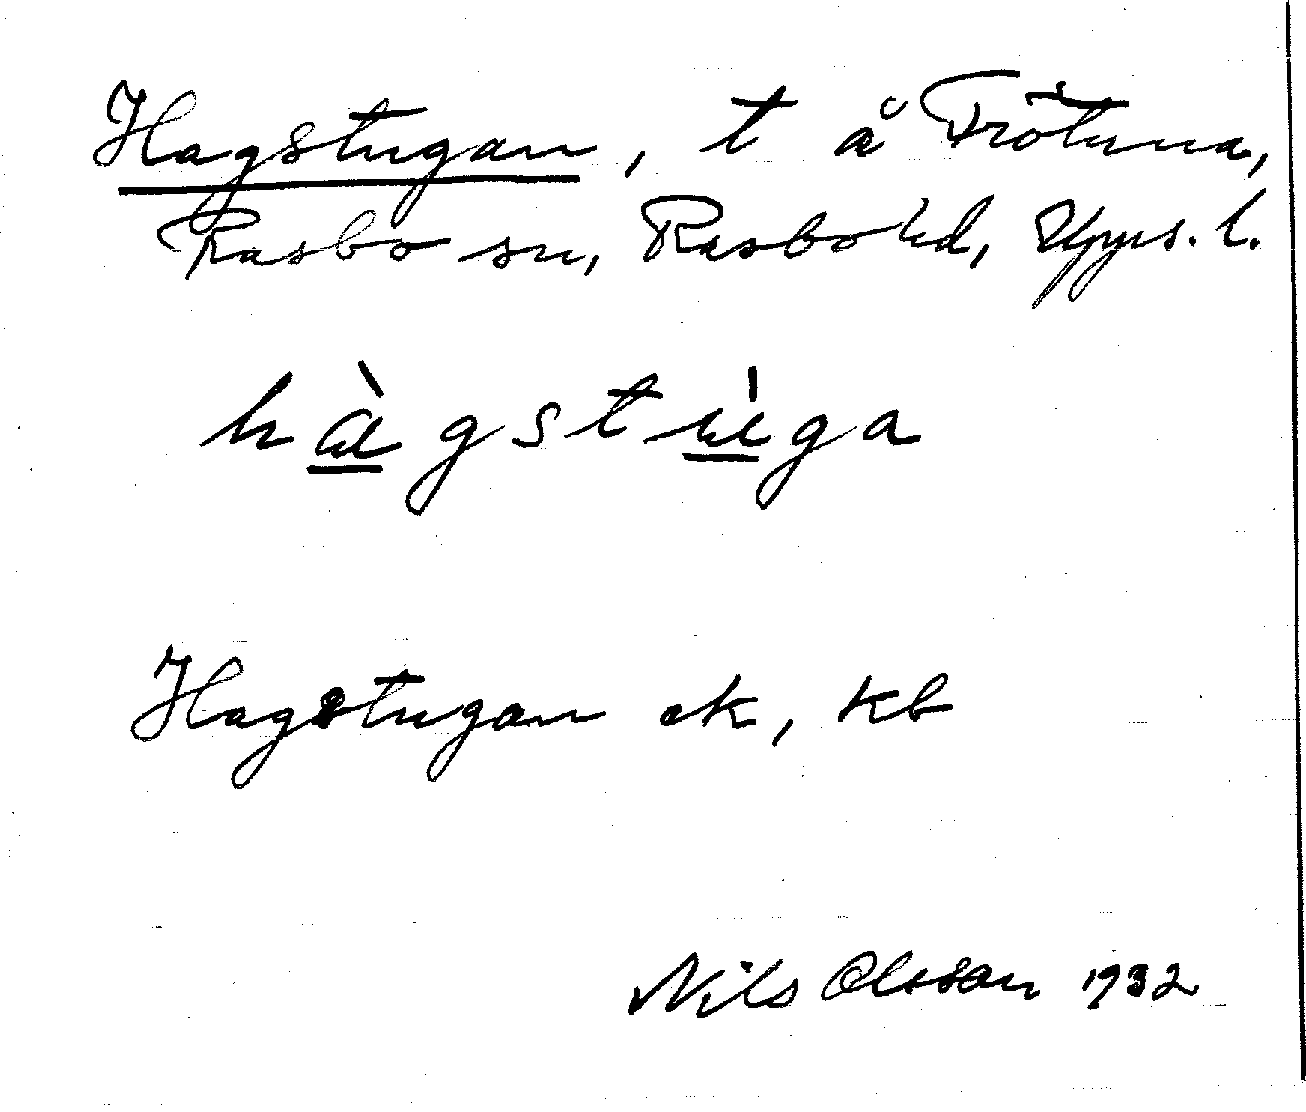 Hagstugan, t å Frötuna,
Rasbo sn, Rasbo hd, Upps. l.
hàgstúga
Hagstugan ek, kb
Nils Olsson 1932